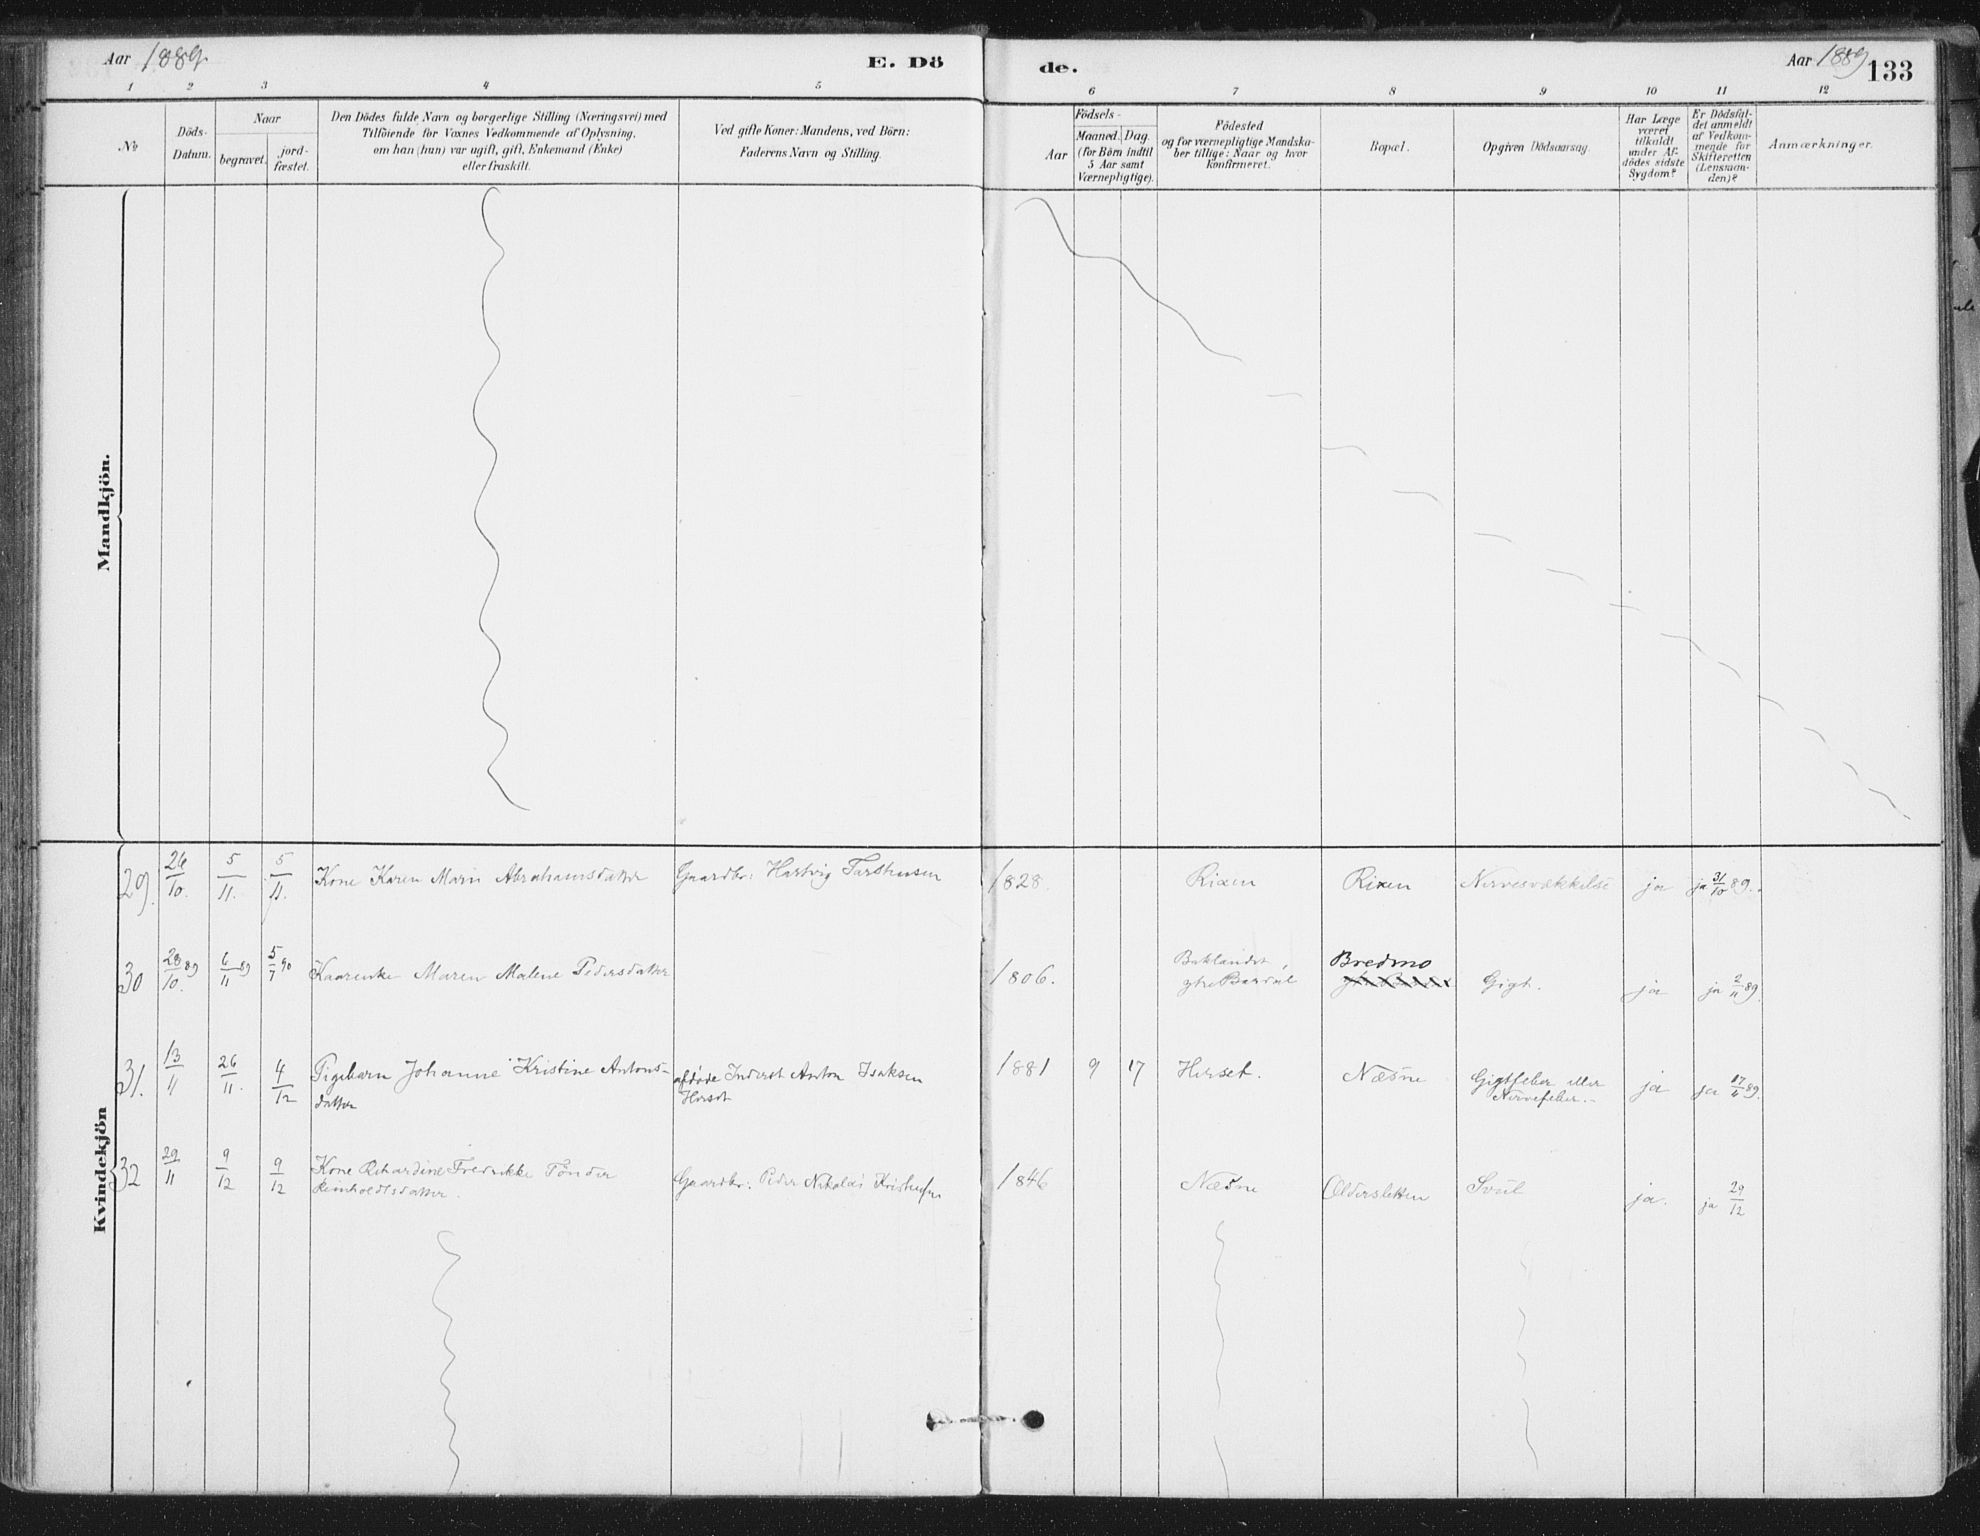 Aar 1889.
E. Dö
de.
Aar 1889.
133
1 2 3 4 5 6 7 8 9 10 11 12
No
Döds-
Datum.
Naar
begravet.
jord-
fæstet.
Den Dödes fulde Navn og borgerlige Stilling (Næringsvei) med
Tilföiende for Voxnes Vedkommende af Oplysning,
om han (hun) var ugift, gift, Enkemand (Enke)
eller fraskilt.
Ved gifte Koner: Mandens, ved Börn:
Faderens Navn og Stilling.
Födsels-
Aar
Maaned. Dag.
(for Börn indtil
5 Aar samt
Værnepligtige).
Födested
og for værnepligtige Mandska-
ber tillige: Naar og hvor
konfirmeret.
Bopæl.
Opgiven Dödsaarsag.
Har Læge
været
tilkaldt
under Af-
dödes sidste
Sygdom?
Er Dödsfal-
det anmeldt
af Vedkom-
mende for
Skifteretten
(Lensman-
den)?
Anmærkninger.
Mandkjön.
Kvindekjön
29. 26/10. 5/11. 5/11. Kone Karen Marie Abrahamsdatter Gaardbr: Hartvig Torstensen 1828. Rixen Rixen Nervesvækkelse ja ja 31/10 89.
30 28/10. 89 6/11 89 5/7 90 Kaarenke Maren Malene Pedersdatter 1806. Baklandet, ytre Bardal Bredmo Gigt. ja ja 2/11 89.
31. 13/11 26/11. 4/12 Pigebarn Johanne Kristine Antons-
datter
afdøde Inderst Anton Isaksen
Herset
1881 9 17 Herset. Næsne Gigtfeber eller
Nervefeber.-
ja ja 17/11 89.
32 29/11 9/12 9/12 Kone Rikardine Fredrikke Tönder
Reinholdtsdatter.
Gaardbr: Peder Nikolai Kristensen 1846 Næsne Oldersletten Svul ja. ja 29/12